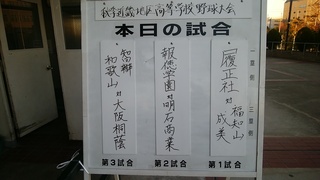 秋季近畿地区高等学校野球大会
本日の試合
一塁側 三塁側
履正社 対 福知山成美
第1試合
報徳学園 対 明石商業
第2試合
智辯和歌山 対 大阪桐蔭
第3試合